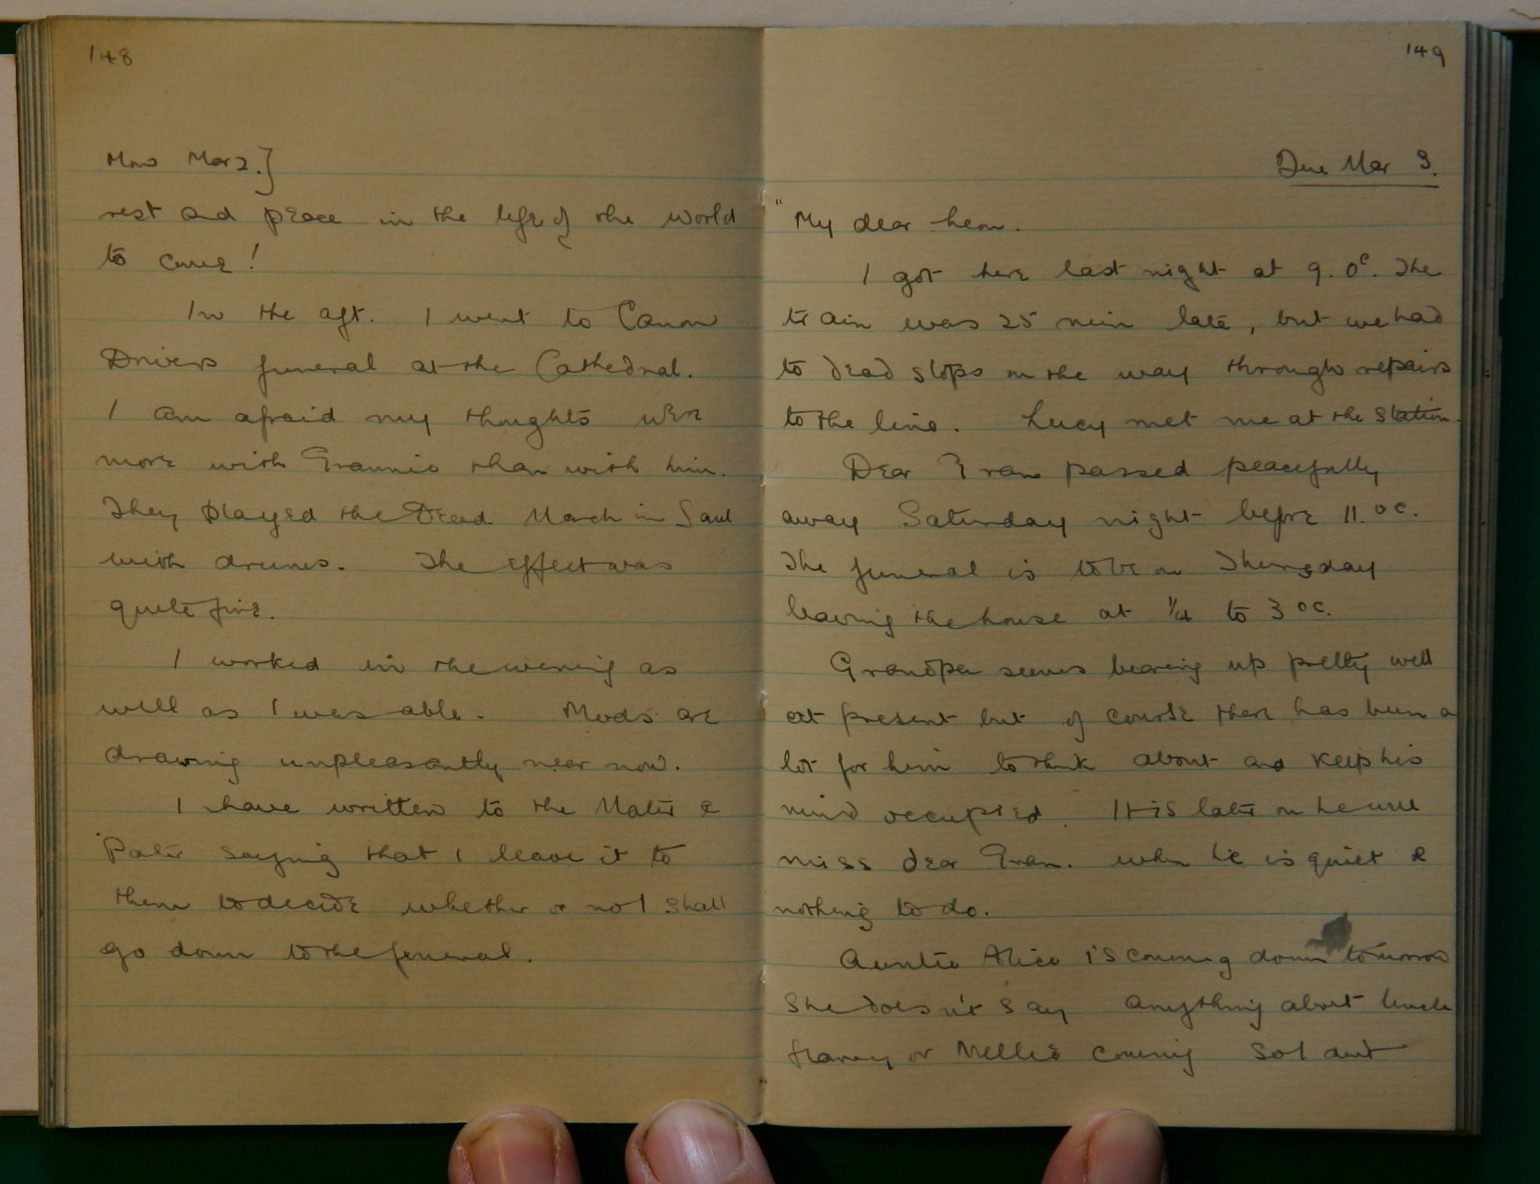 148
Mon Mar 2.]
rest and peace in the life of the world
to come!
In the aft. I went to Canon
Drivers funeral at the Cathedral.
I am afraid my thoughts were
more with Grannie than with him.
They played the Dead March in Saul
with drums. The effect was
quite fine.
I worked in the evening as
well as I was able. Mods are
drawing unpleasantly near now.
I have written to the Mater &
Pater saying that I leave it to
them to decide whether or no I shall
go down to the funeral.
149
Tue Mar 3.
"My dear
I got here last night at 9. 0c. The
train was 25 min late, but we had
to dead stops on the way through repairs
to the line. Lucy met me at the station.
Dear Gran passed peacefully
away Saturday night before 11. oc.
The funeral is to be on Thursday
leaving the house at 1/4 to 3 oc.
Grandpa seems bearing up pretty well
at present but of course there has been a
lot for him to think about and keep his
mind occupied. It is later on he will
miss dear Gran. when he is quiet &
nothing to do.
Auntie Alice is coming down tomorrow
She doesn't say anything about Uncle
Harry or Nellie coming so I dont